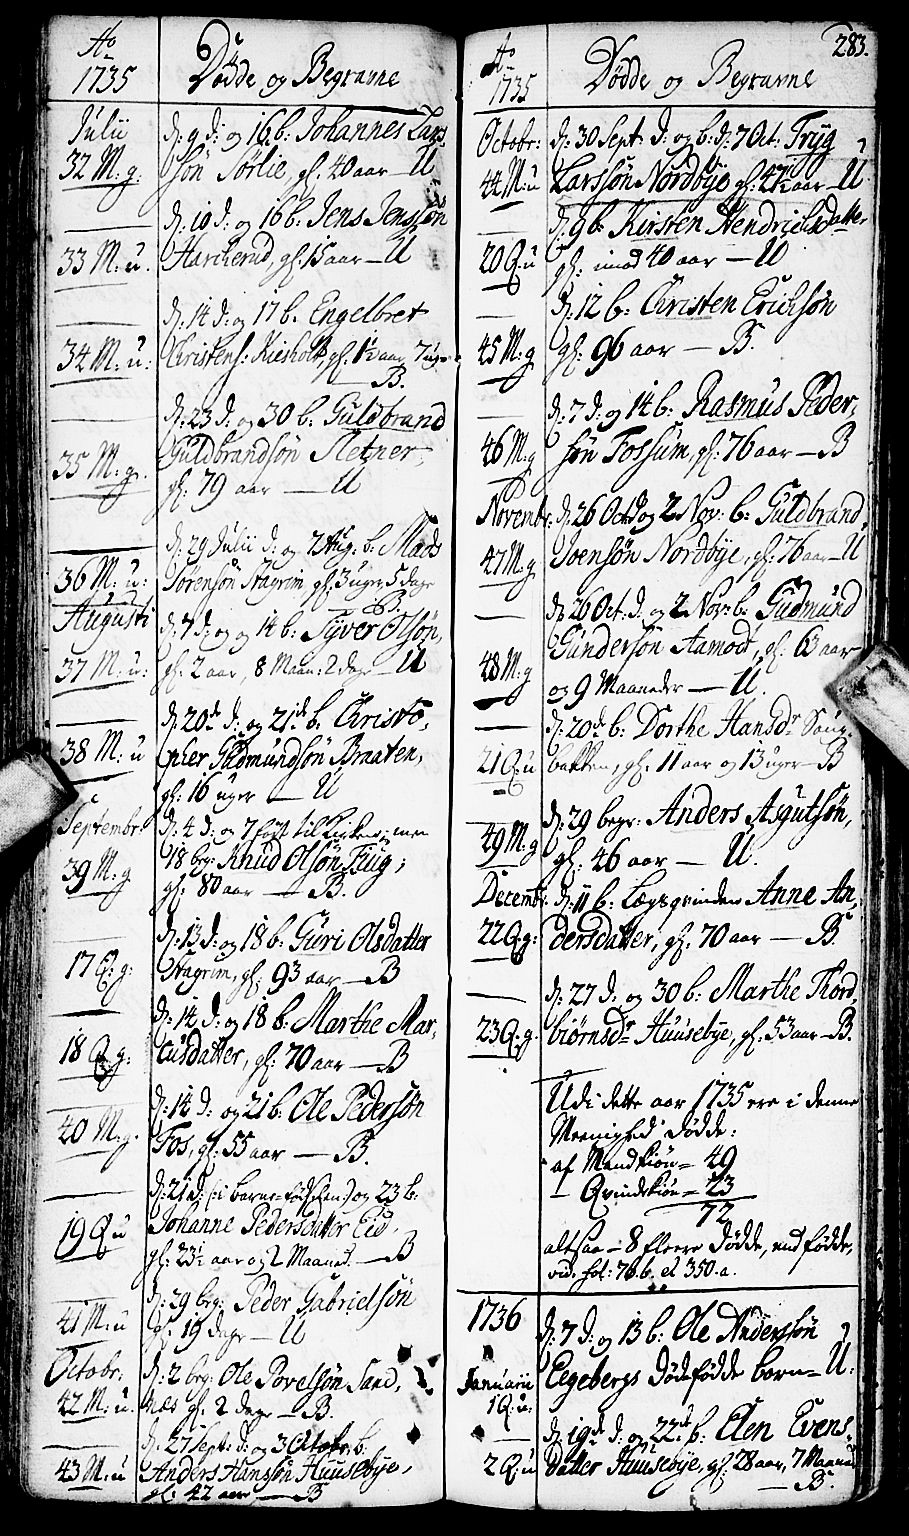 Ao
1735
Dødde og Begravne
Julii
32 M: g:
d: 9 d: og 16 b: Johannes Lars
søn Sørlie, gl: 40 aar — U
33 M: u.
d: 10 d: og 16 b: Jens Jenssøn
Harcherud, gl: 15 aar — U
34 M: u:
d: 14 d: og 17 b: Engelbret
Christens: Kiesholt, gl: 1½ aar 7 uger
— B.
35 M: g.
d: 23 d: og 30 b: Guldbrand
Guldbrandsøn Sletner,
gl: 79 aar — U
36 M: u:
d: 29 Julii d: og 7 Aug: b: Mads
Sørensøn Nagrim, gl: 3 uger 5 dage
— B.
Augusti
37 M: u:
d: 7 d: og 14 b: Syver Olsøn,
gl: 2 aar, 8 Maan: 2 dage — U
38 M: u
d: 20de d: og 21de b: Christo,
pher Gudmundsøn Braaten,
gl: 16 uger — U
Septembr:
39 M: g
d: 4 d: og 7 ført til Kirken, men
18 beg: Knud Olsøn Fiug;
gl: 80 aar — B.
17 Q: g:
d: 13 d: og 18 b: Guri Olsdatter
Nagrim, gl: 93 aar — B
18 Q g:
d: 14 d: og 18 b: Marthe Mar,
cusdatter, gl: 70 aar — B
40 M: g.
d: 14 d: og 21 b: Ole Pedersøn
Fos, gl: 55 aar — B.
19 Q u
d: 21 d: (: i barne-fødselen :) og 23 b:
Johanne Pedersdatter Eid,
gl: 23½ aar og 2 Maaned. — B
41 M: u
d: 29 beg: Peder Gabrielsøn
gl: 19 dage — U
Octobr.
42 M: u.
d: 2 beg: Ole Povelsøn Sand,
næs gl: 2 dage — B.
43 M: u
d: 27 Sept: d: og 3 Octobr: b:
Anders Hansøn Huusebye,
gl: 42 aar — B
283.
Ao
1735
Dødde og Begravne
Octobr:
44 M: u
d: 30 Sept: d: og b: d: 7 Oct: Tryg
Larssøn Nordbye gl: 47½ aar — U
20 Q: u
d: 9 b: Kirsten Hendrichsdatter
gl: imod 40 aar — U
45 M: g
d: 12 b: Christen Erichsøn
gl: 96 aar — B.
46 M: g
d: 7 d: og 14 b: Rasmus Peder,
søn Fossum, gl: 76 aar — B
Novembr:
47 M: g
d: 26 Oct: d: og 2 Nov: b: Guldbrand
Joensøn Nordbye, gl: 76 aar — U
48 M: g
d: 26 Oct: d: og 2 Nov: b: Gudmund
Gundersøn Aamodt, gl: 63 aar
og 9 Maaneder — U.
21 Q: u
d: 20de b: Dorthe Hansdr Saug,
bakken, gl: 11 aar og 13 uger — B
49 M: g
d: 29 begr: Anders Asgutsøn,
gl: 46 aar — U.
Decembr.
22 Q: g:
d: 11 b: Lægsqvinden Anne An,
dersdatter, gl: 70 aar — B.
23 Q: g.
d: 27 d: og 30 b: Marthe Thord,
biørnsdr Huusebye, gl: 53 aar — B.
Udi dette aar 1735 ere i denne
Meenighed dødde:
af Mandkiøn = 49
— Qvindekiøn = 23
72
altsaa — 8 fleere dødde, end fødde,
vid: fol: 76 b. et 350. a.
1736
Januarii
1 Q: u:
d: 7 d: og 13 b: Ole Anderssøn
Eegebergs Dødfødde barn — U:
2 Q: u
d: 19de d: og 22de b: Elen Evens
datter Huusebye, gl: 28 aar, 7 Maaned
— B.